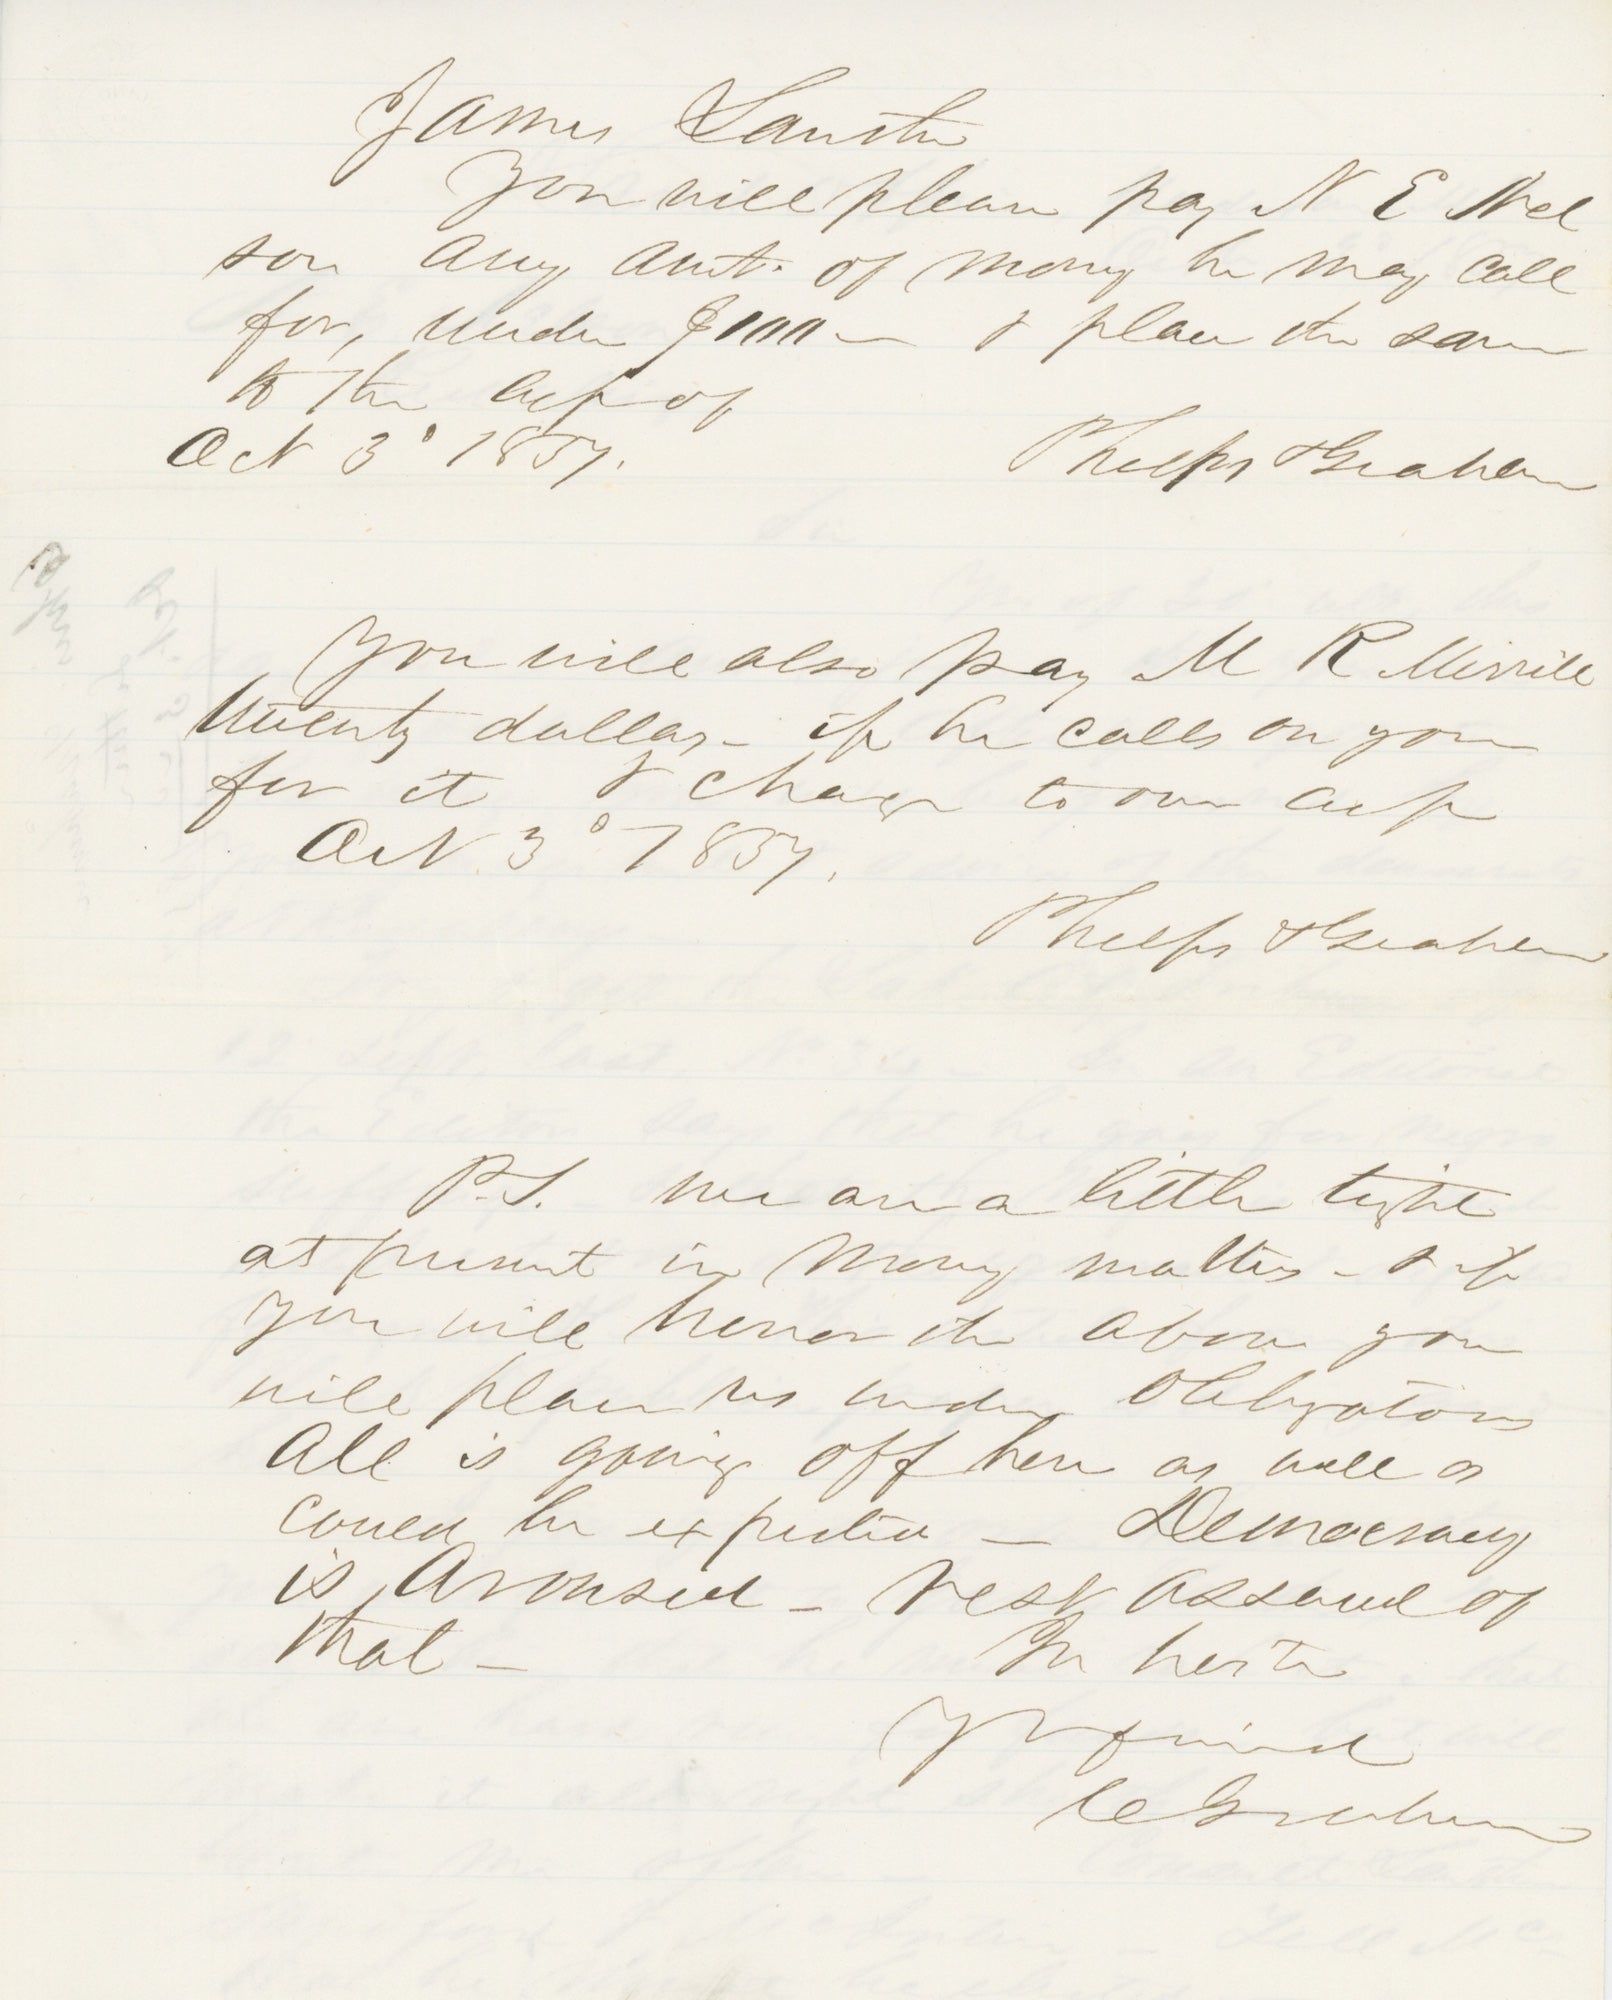 James
You will please pay N E Nel
son any amt. of money he may call
for, under $100 — & place the same
to the acct of
Oct 3d 1857.
Phelps & Graham
You will also pay M R Merrill
twenty dollars — if he calls on you
for it & charge to our acct
Oct 3d 1857.
Phelps & Graham
P.S. We are a little tight
at present in money matters — & if
you will honor the above you
will place us under obligations
All is going off here as well as
could be expected — Democracy
is Aroused — rest assured of
that —
In haste
Yr friend
C Graham